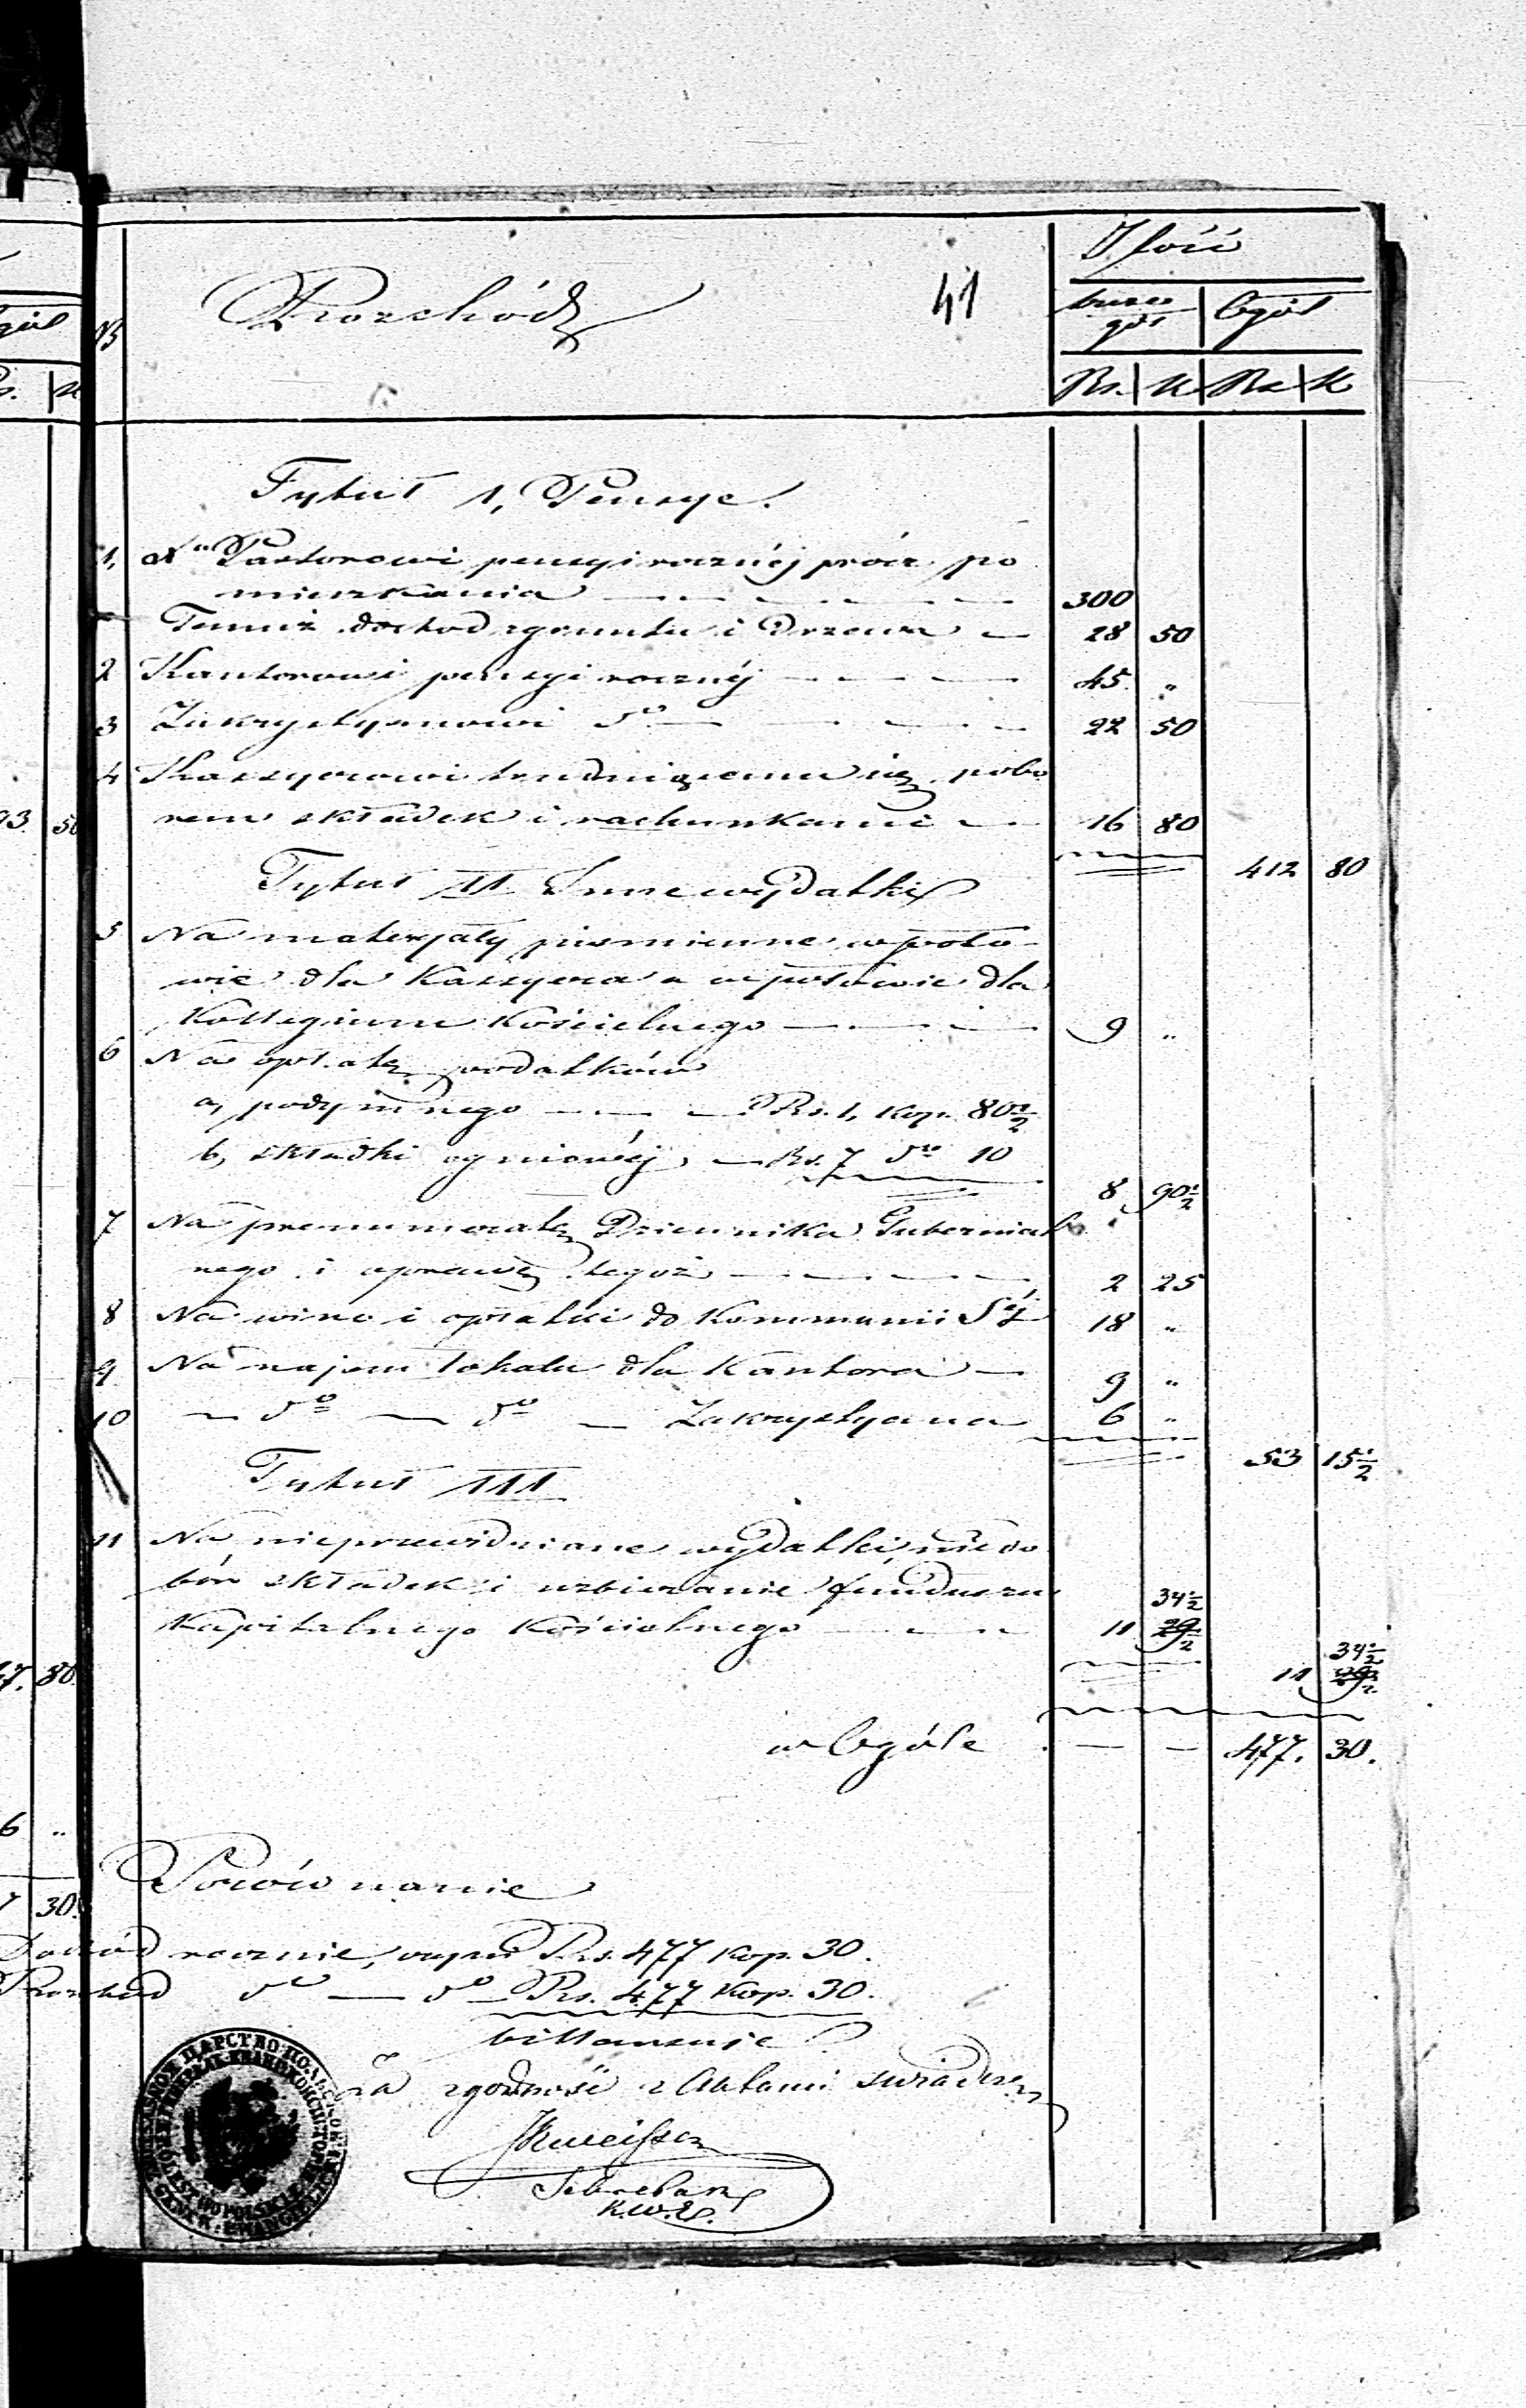 Rozchód
41
Ilość
szcze
gół | Ogół
№
Rs. | K | Rs | K
Tytuł 1, Pensye.
1, Xu Pastorowi pensyi rocznéj prócz po
mieszkania 300
Temuż dochod z gruntu i Drzewa 28 50
2 Kantorowi pensyi rocznéj 45 "
3 Zakrystyanowi do 22 50
4 Kassyerowi trudniącemu się pobo
rem składek i rachunkami 16 80
412 80
Tytuł II Inne wydatki
5 Na materyały piśmienne w poło-
wie dla Kassyera a w połowie dla
Kollegium Kościelnego 9 "
6 Na opłatę podatków
a, podymnego Rs. 1, kop. 80½
b, składki ogniowéj Rs. 7 do 10
8 90½
7 Na prenumeratę Dziennika Gubernial
nego i oprawę tegoż 2 25
8 Na wino i opłatki do Kommunii Sej 18 "
9 Na najem lokalu dla Kantora 9 "
10 do do Zakrystyana 6 "
53 15½
Tytuł III
11 Na nieprzewidziane wydatki, niedo
bór składek i uzbieranie funduszu
34½
Kapitalnego Kościelnego 11 29½
34½
11 29½
w Ogóle 477. 30.
Porównanie
Dochód rocznie, wynosi Rs. 477 kop. 30.
Rozchod do do Rs. 477 Kop. 30.
billansuje
Za zgodność z Aktami świadczę
Sekretarz
K.W.E.
93. 50
47. 80
6 "
7 30.